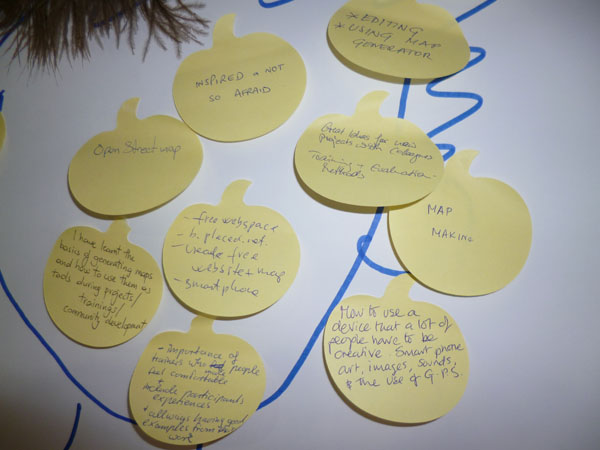 * EDITING
* USING MAP
GENERATOR
INSPIRED & NOT
SO AFRAID
Great Ideas for new
projects with Colleagues
Training + Evaluation
Methods
Open Street map
MAP
MAKING
- free webspace
- b.placed.net.
- create free
website + map
- smartphone
I have learnt the
basics of generating maps
and how to use them as
tools during projects/
trainings/
community development
How to use a
device that a lot of
people have to be
creative. Smart phone
art, images, sounds,
& the use of G.P.S
- Importance of
trainers who make people
feel comfortable
+
include participants
experiences
+ allways having good
examples from
work